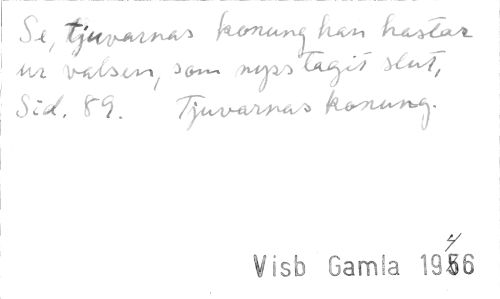 Se, tjuvarnas konung han hastar
ur valsen, som nyss tagit slut,
Sid. 89. Tjuvarnas konung.
4
Visb Gamla 1956